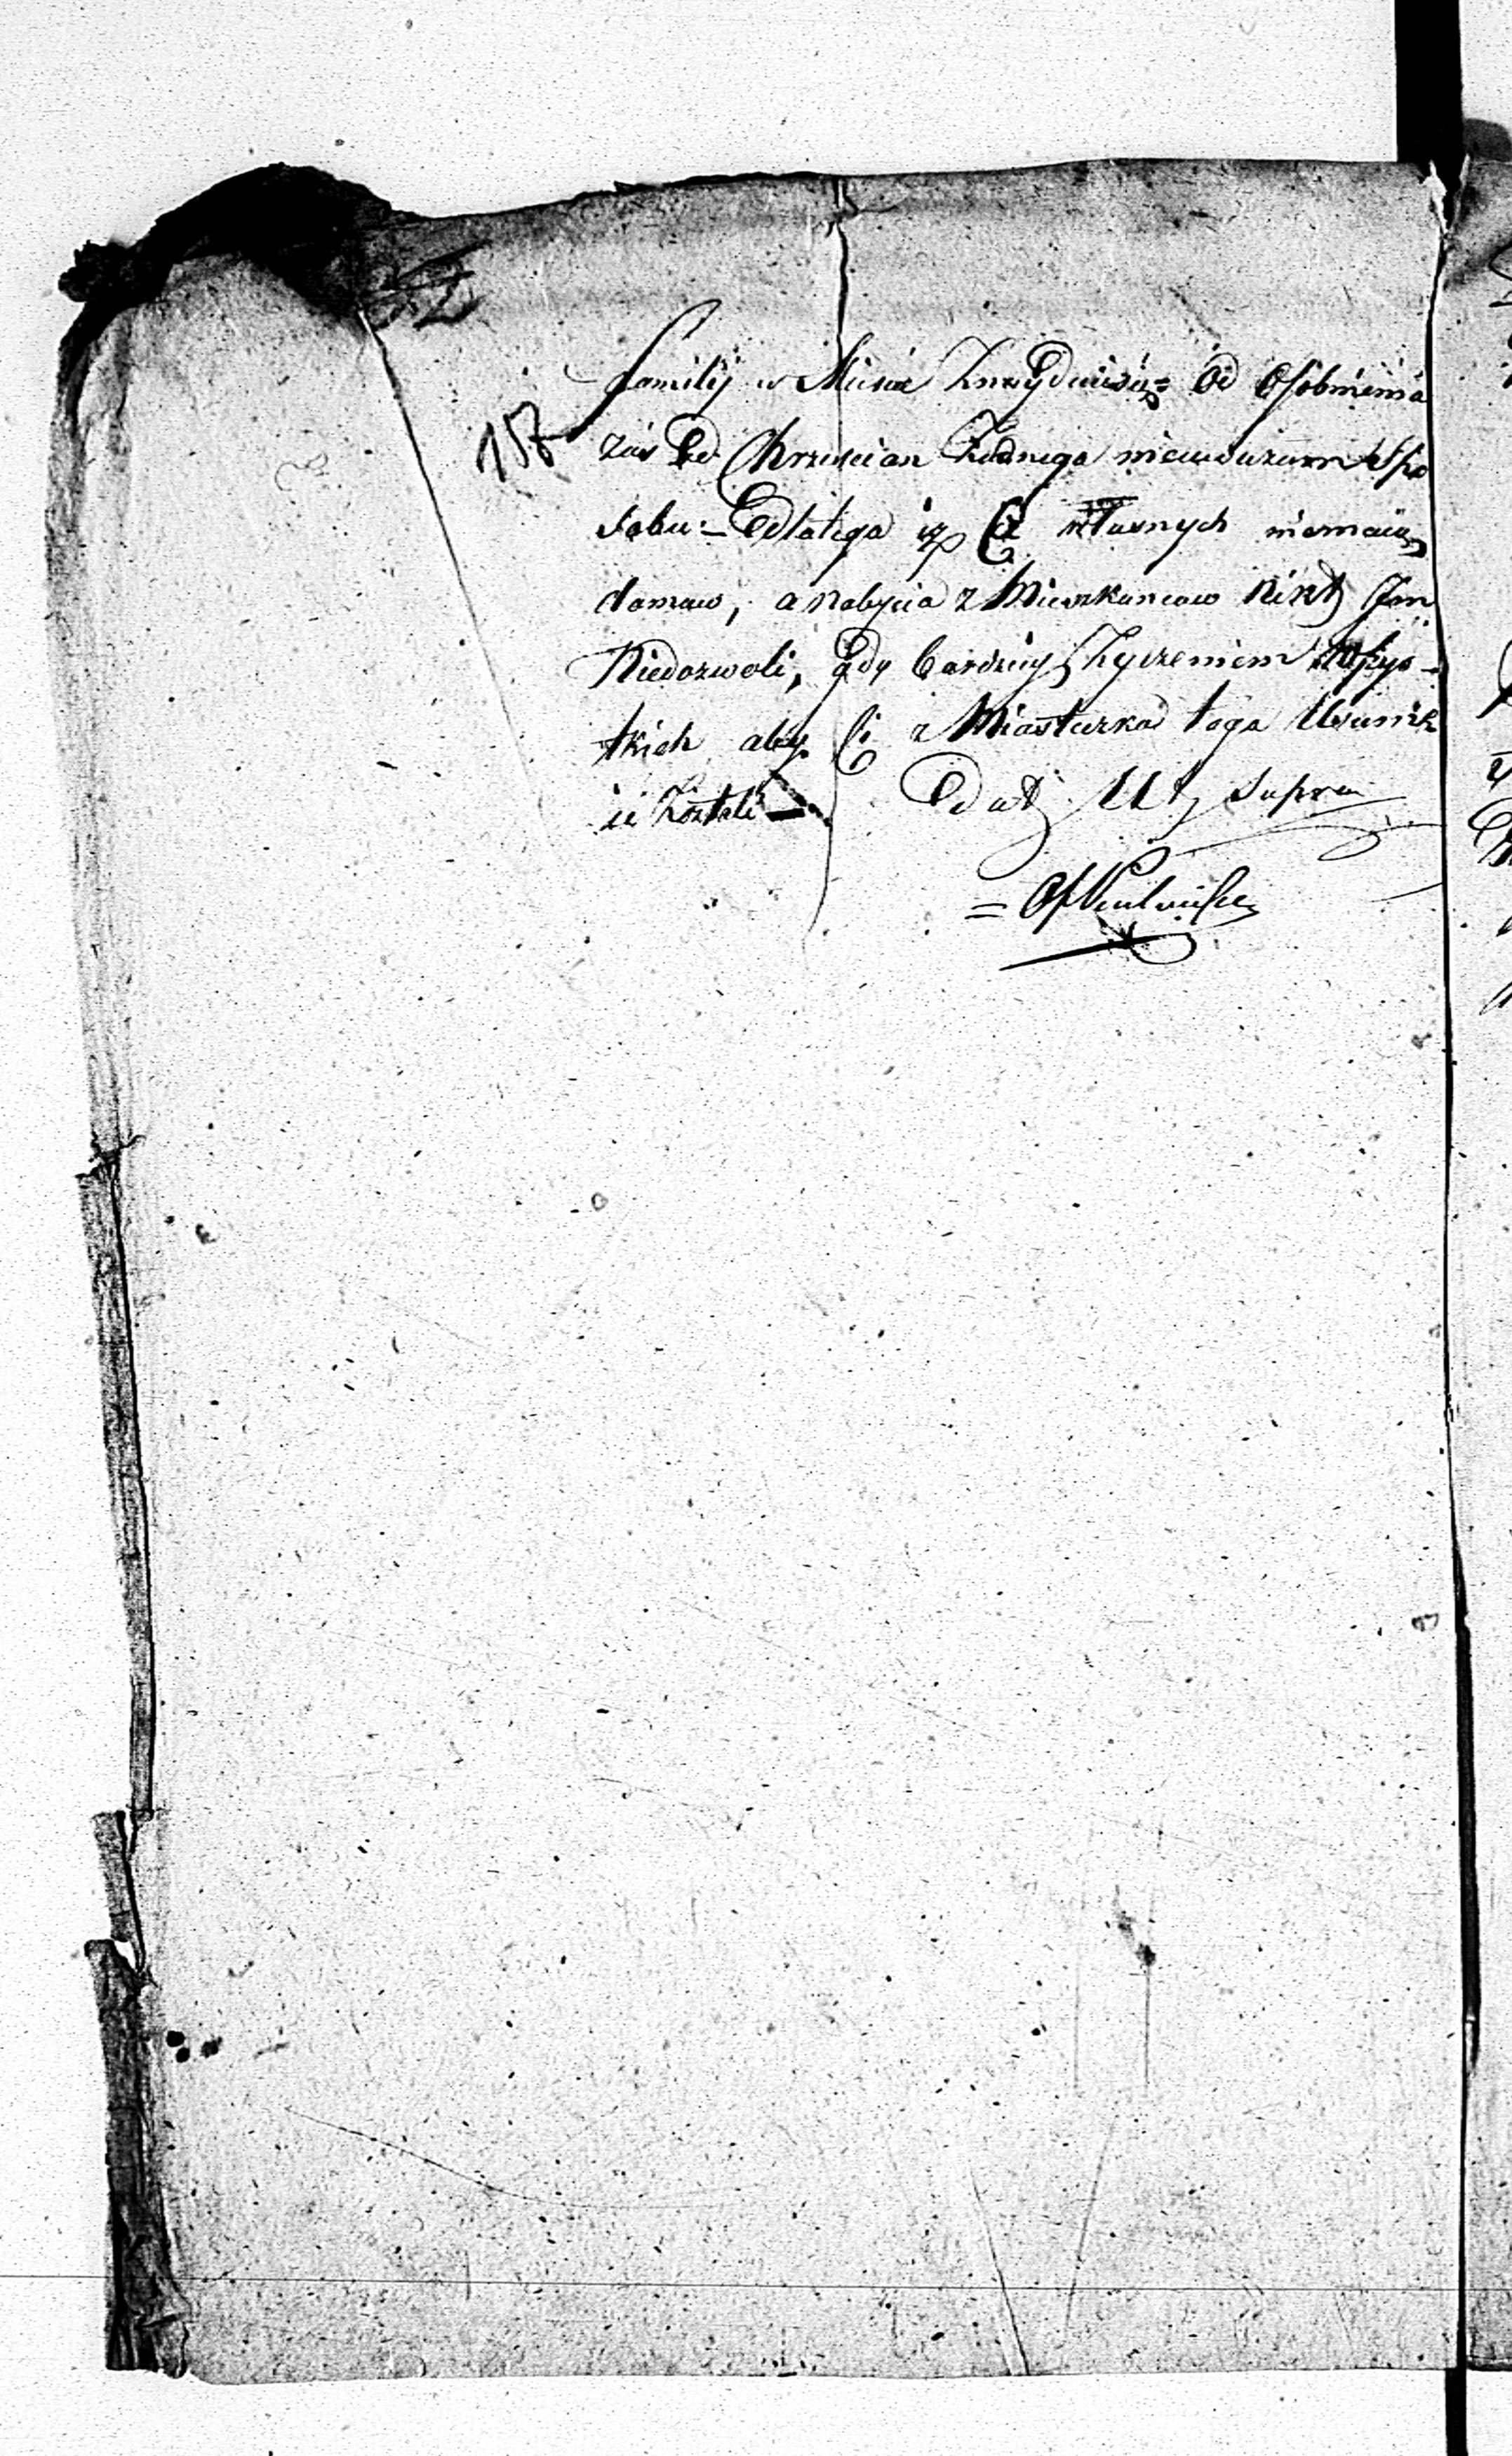 familij w Miescie Znayduią= Od Osobnienia
157 zaś Od Chrzescian Zadnego nieuwazam Spo
sobu: – Dlatego iż Ci własnych niemaią
domow, a Nabycia z Mieszkancow Nikt Jm
Niedozwoli, gdy bardziey Zyczeniem Wszys-
tkich aby Ci z Miasteczka tego Usunie
ie Zostali – Dat Ut Supra